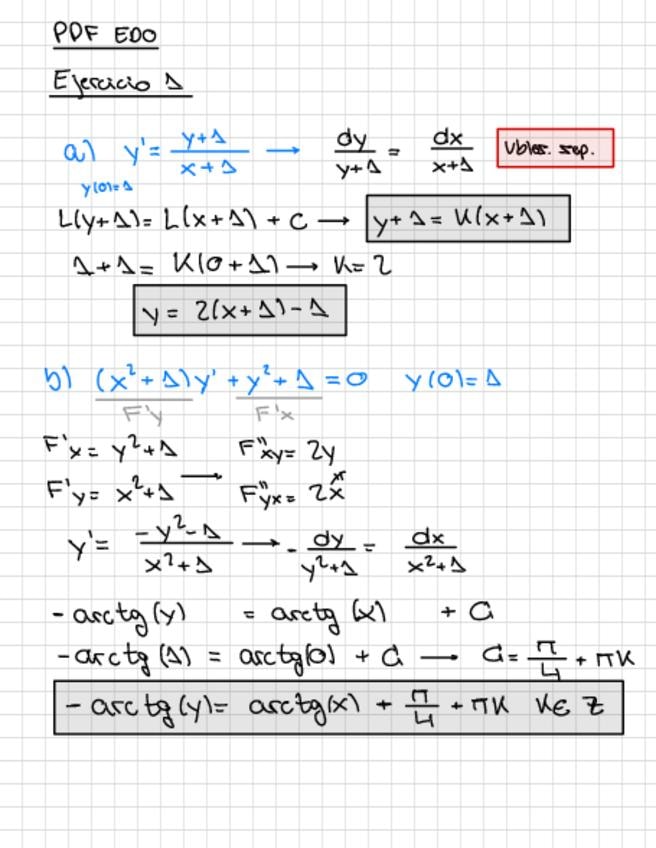 PDF EDO
Ejercicio 1
a) y' = (y+1)/(x+1) → dy/(y+1) = dx/(x+1) Vbles. sep.
y(0)=1
L(y+1) = L(x+1) + C → y+1 = K(x+1)
1+1 = K(0+1) → K=2
y = 2(x+1)-1
b) (x²+1)y' + y²+1 = 0 y(0)=1
F'y F'x
F'x = y²+1 → F''xy = 2y
F'y = x²+1 F''yx = 2x
y' = (-y²-1)/(x²+1) → -dy/(y²+1) = dx/(x²+1)
-arctg(y) = arctg(x) + C
-arctg(1) = arctg(0) + C → C = π/4 + πK
-arctg(y) = arctg(x) + π/4 + πK K∈Z